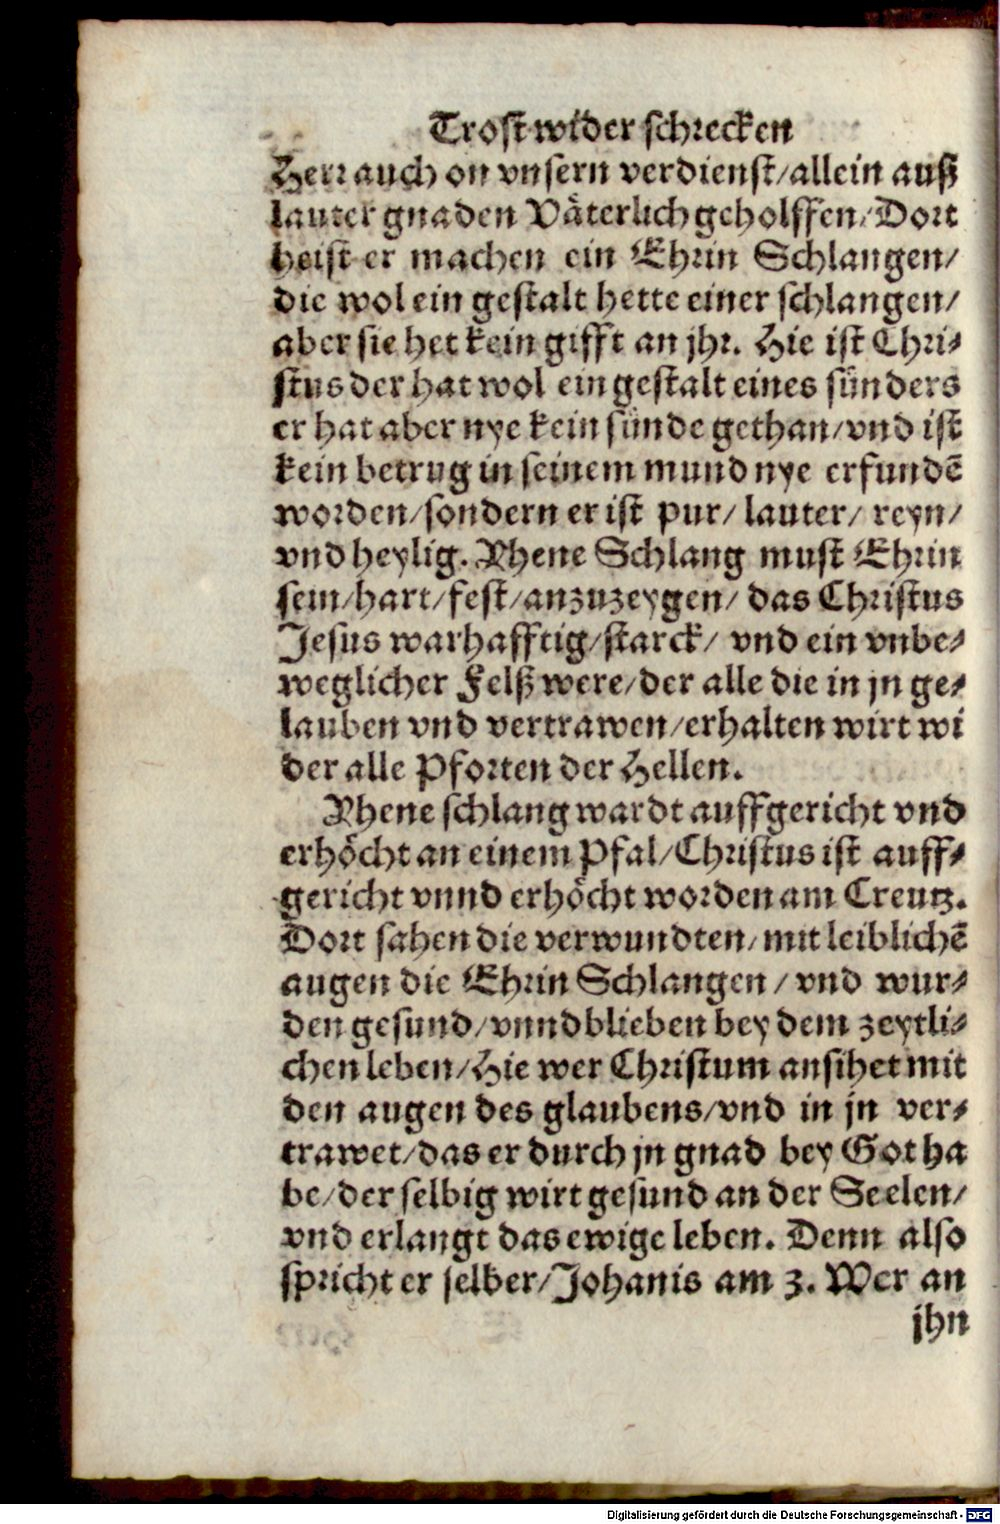 Trost wider schrecken
Herr auch on vnsern verdienst/allein auß
lauter gnaden Väterlich geholffen/Dort
heist er machen ein Ehrin Schlangen/
die wol ein gestalt hette einer schlangen/
aber sie het kein gifft an jhr. Hie ist Chri-
stus der hat wol ein gestalt eines sünders
er hat aber nye kein sünde gethan/vnd ist
kein betrug in seinem mund nye erfundē
worden/sondern er ist pur/ lauter/ reyn/
vnd heylig. Yhene Schlang must Ehrin
sein/hart/fest/anzuzeygen/ das Christus
Jesus warhafftig/starck/ vnd ein vnbe-
weglicher Felß were/der alle die in jn ge-
lauben vnd vertrawen/erhalten wirt wi
der alle Pforten der Hellen.
Yhene schlang wardt auffgericht vnd
erhöcht an einem Pfal/Christus ist auff-
gericht vnnd erhöcht worden am Creutz.
Dort sahen die verwundten/mit leiblichē
augen die Ehrin Schlangen/vnd wur-
den gesund/vnnd blieben bey dem zeytli-
chen leben/Hie wer Christum ansihet mit
den augen des glaubens/vnd in jn ver-
trawet/das er durch jn gnad bey Got ha
be/der selbig wirt gesund an der Seelen/
vnd erlangt das ewige leben. Denn also
spricht er selber/Johanis am 3. Wer an
jhn
Digitalisierung gefördert durch die Deutsche Forschungsgemeinschaft - DFG